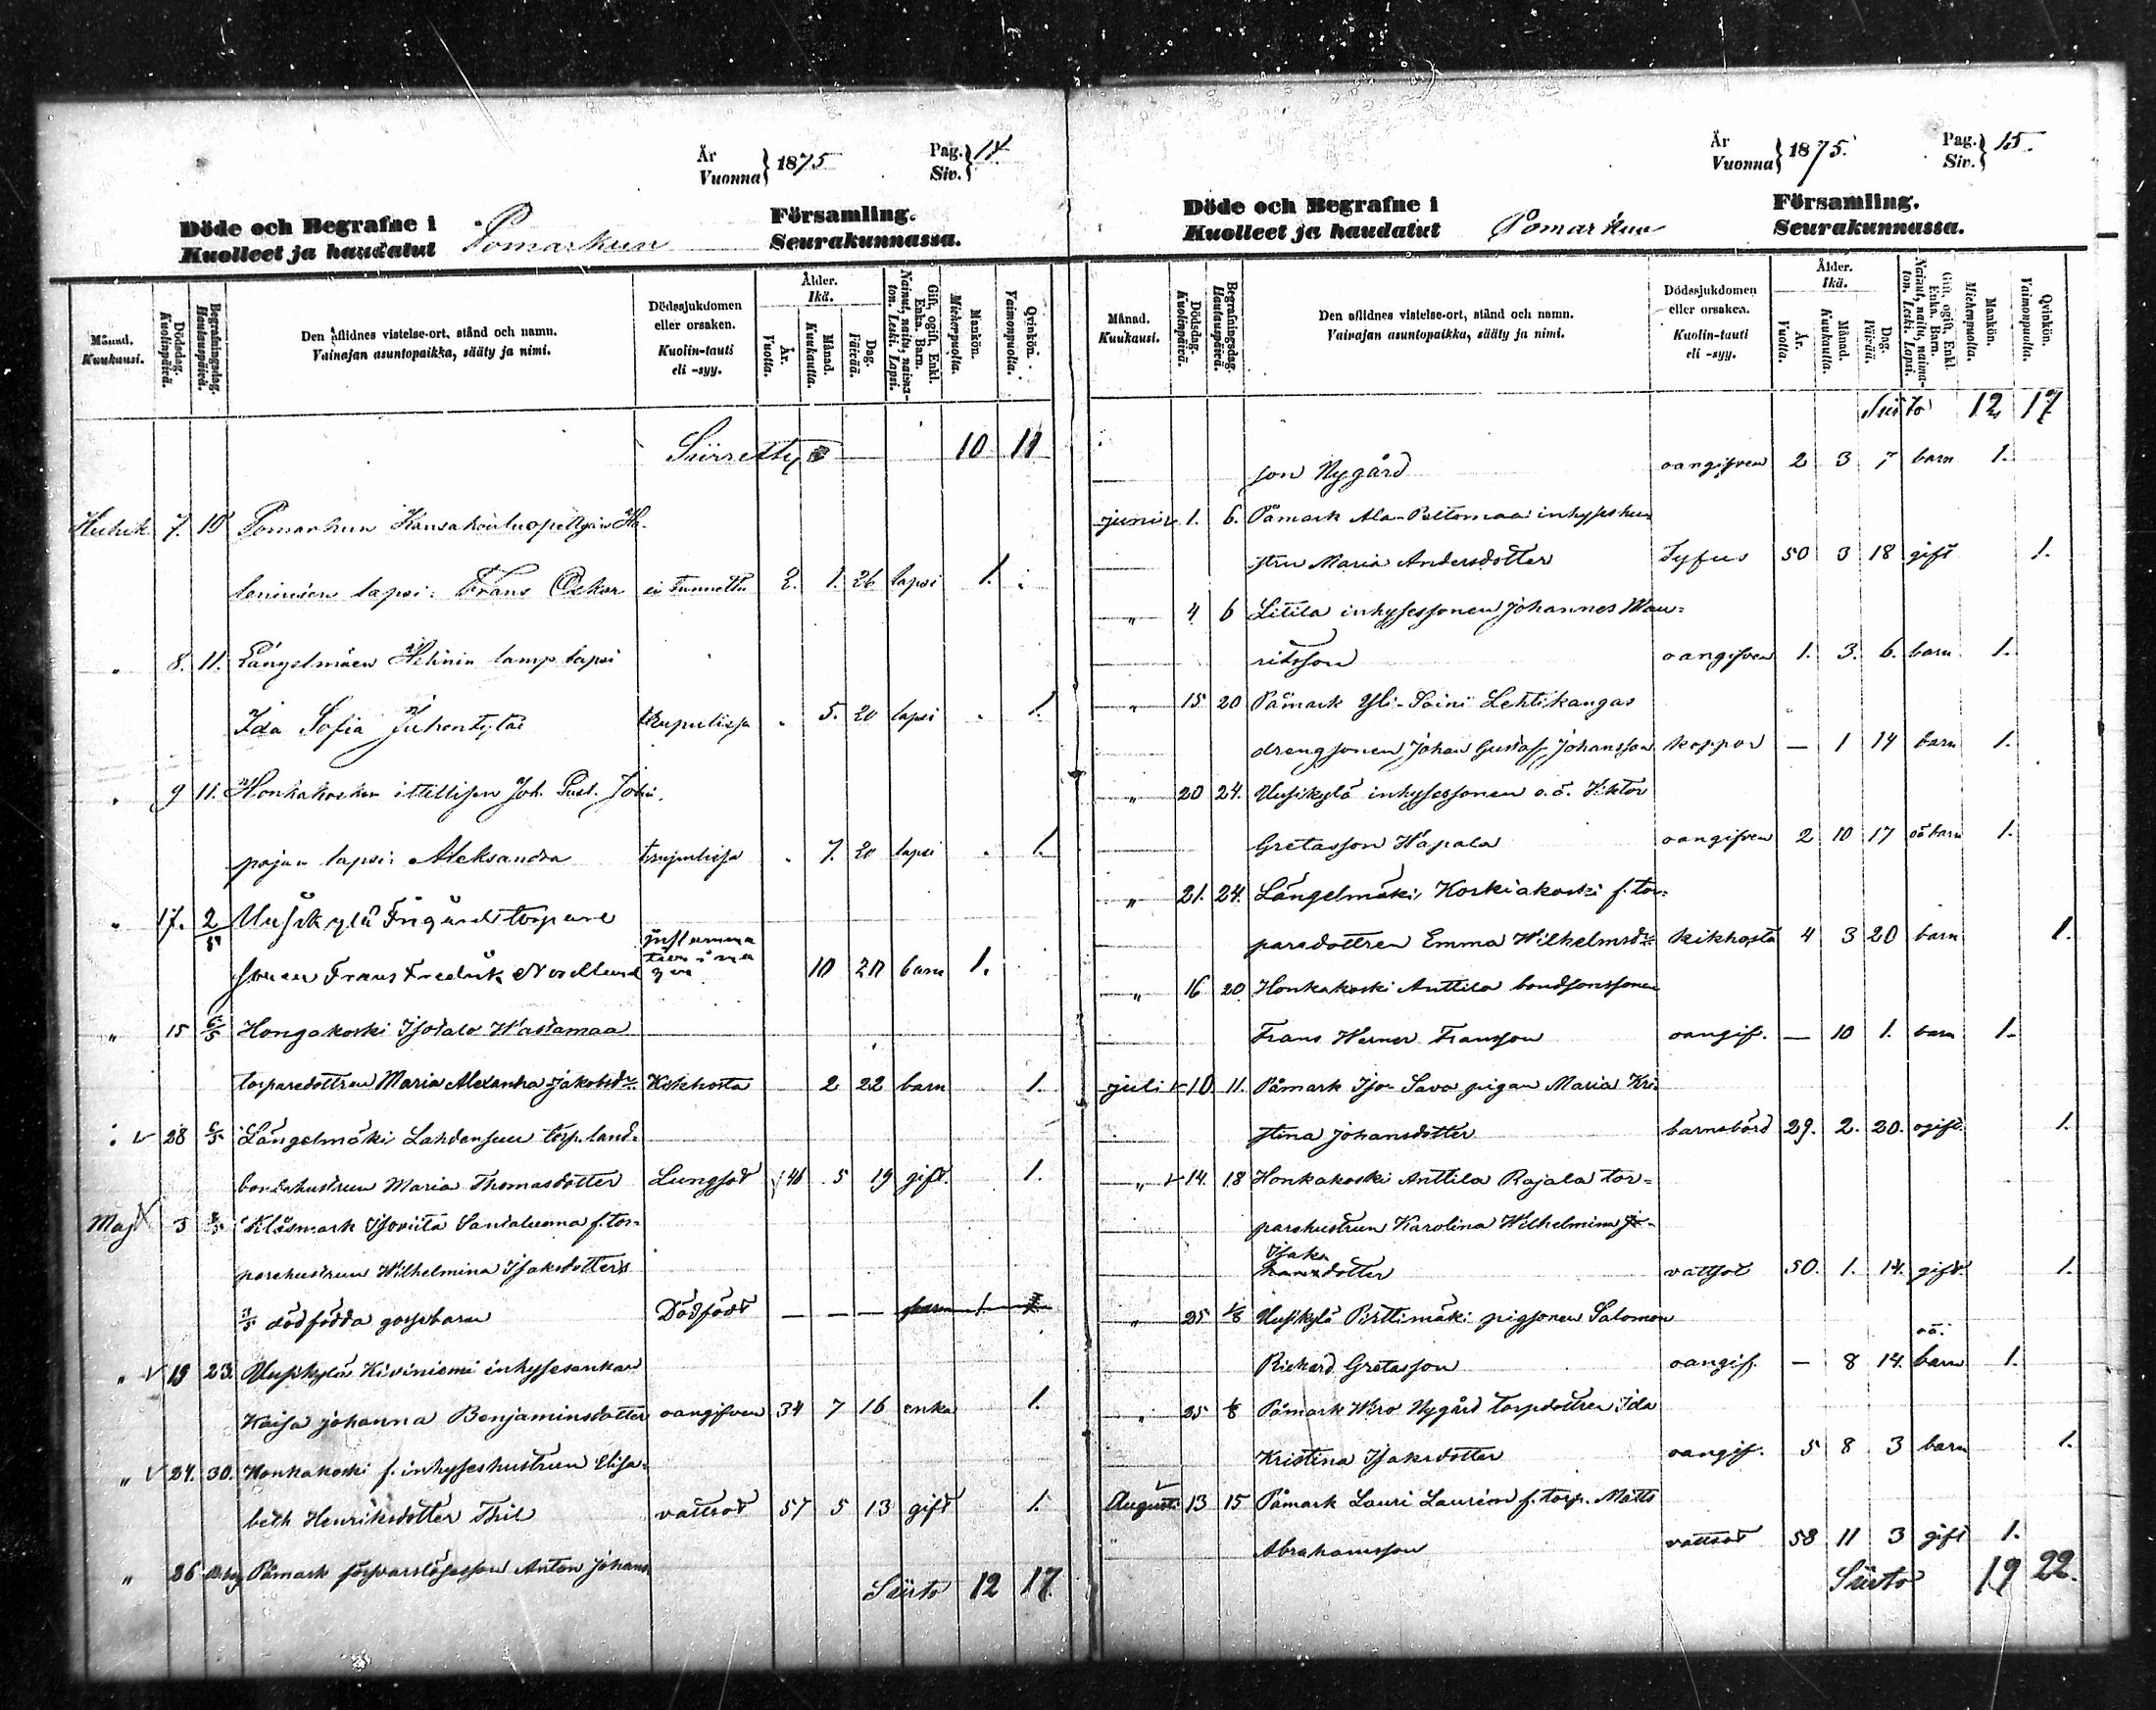 År
Vuonna } 1875 Pag.
Siv. } 14.
Döde och Begrafne i
Kuolleet ja haudatut Pomarkun Församling.
Seurakunnassa.
Månad.
Kuukausi.
Dödsdag.
Kuolinpäivä.
Begrafningsdag.
Hautauspäivä.
Den aflidnes vistelse-ort, stånd och namn.
Vainajan asuntopaikka, sääty ja nimi.
Dödssjukdomen
eller orsaken.
Kuolin-tauti
eli -syy.
Ålder.
Ikä.
År.
Vuotta.
Månad.
Kuukautta.
Dag.
Päivää.
Gift, ogift, Enkl.
Enka. Barn.
Nainut, naitu, naima-
ton. Leski. Lapsi.
Mankön.
Miehenpuolia.
Qvinkön.
Vaimonpuolia.
Siirretty 10 11
Huhtik. 7. 10 Pomarkun Kansakouluopettajan
lapsi: Frans Oskar ei tunnettu 2. 1. 26 lapsi 1.
" 8. 11. Längelmäen Heinin lamp. lapsi
Ida Sofia Juhontytär 5. 20 lapsi 1.
" 9 11. Honkakosken itsellisen Joh. Gust. Joh.
pojan lapsi: Aleksandra 7. 20 lapsi 1.
" 17. 2/5 Uusikylä torpare
sonen Frans Fredrik Nordlund 10 20 barn 1.
" 15 6/5 Hongakoski Isotalo Wastamaa
torparedottren Maria Alexandra Jakobsdr. Kikhosta 2 22 barn 1.
" 28 6/5 Längelmäki Lahdensuu torp. land-
bondehustrun Maria Thomasdotter Lungsot 46 5 19 gift. 1.
Maj 3 Klåsmark Isoviita Santaluoma f. tor-
parehustrun Wilhelmina Isaksdotters
3/5 dödfödda gossebarn Dödfödt — — — barn 1.
" 19 23. Uusikylä Kiviniemi inhysesenkan
Kaisa Johanna Benjaminsdotter oangifven 34 7 16 enka 1.
" 24. 30. Honkakoski f. inhyseshustrun Elisa-
beth Henriksdotter Thil vattsot 57 5 13 gift 1.
" 26 Påmark Anton Johans
Siirto 12 17.
År
Vuonna } 1875. Pag.
Siv. } 15.
Döde och Begrafne i
Kuolleet ja haudatut Pomarkun Församling.
Seurakunnassa.
Månad.
Kuukausi.
Dödsdag.
Kuolinpäivä.
Begrafningsdag.
Hautauspäivä.
Den aflidnes vistelse-ort, stånd och namn.
Vainajan asuntopaikka, sääty ja nimi.
Dödssjukdomen
eller orsaken.
Kuolin-tauti
eli -syy.
Ålder.
Ikä.
År.
Vuotta.
Månad.
Kuukautta.
Dag.
Päivää.
Gift, ogift, Enkl.
Enka. Barn.
Nainut, naitu, naima-
ton. Leski. Lapsi.
Mankön.
Miehenpuolia.
Qvinkön.
Vaimonpuolia.
Siirto 12 17
son Nygård oangifven 2 3 7 barn 1.
juni 1. 6. Påmark Ala-Peltomaa inhyseshu-
strun Maria Andersdotter Tyfus 50 3 18 gift 1.
" 4 6 Litila inhysessonen Johannes Mau-
ritsson oangifven 1. 3. 6. barn 1.
" 15 20 Påmark Yli-Soini Lehtikangas
drengsonen Johan Gustaf Johansson koppor — 1 14 barn 1.
" 20 24. Uusikylä inhysessonen o.ä. Viktor
Gretasson Hapala oangifven 2 10 17 oä barn 1.
" 21. 24. Längelmäki Koskiakoski f. tor-
paredottren Emma Wilhelmsdr. kikhosta 4 3 20 barn 1.
" 16 20 Honkakoski Anttila bondsonssonen
Frans Werner Fransson oangif. — 10 1. barn 1.
juli 10. 11. Påmark Iso-Sava pigan Maria Kri-
stina Johansdotter barnsbörd 29. 2. 20. ogift. 1.
" 14. 18 Honkakoski Anttila Rajala tor-
parehustrun Karolina Wilhelmina
Isaks
dotter vattsot 50. 1. 14. gift. 1.
" 25 1/8 Uusikylä Perttimäki pigsonen Salomon
Rickard Gretasson oangif. — 8 14. oä. barn 1.
" 25 1/8 Påmark Wiro Nygård torpdottren Ida
Kristina Isaksdotter oangif. 5 8 3 barn 1.
Augusti 13 15 Påmark Lauri Laurion f. torp. Matts
Abrahamsson vattsot 58 11 3 gift 1.
Siirto 19 22.